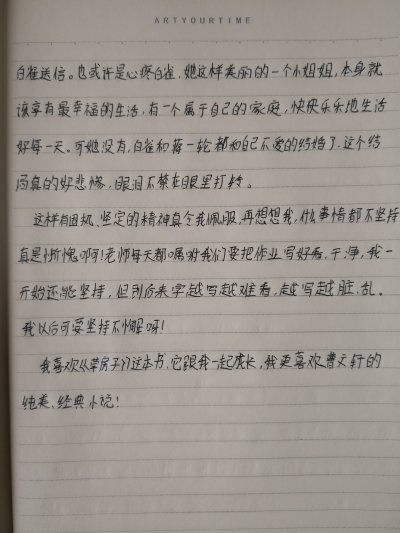 ARTYOURTIME
白雀送信。也或许是心疼白雀,她这样美丽的一个小姐姐,本身就
该享有最幸福的生活,有一个属于自己的家庭,快快乐乐地生活
好每一天。可她没有,白雀和蒋一轮都和自己不爱的结婚了,这个结
局真的好悲惨,眼泪不禁在眼里打转。
这样有困机、坚定的精神真令我佩服,再想想我,什么事情都不坚持
真是惭愧啊!老师每天都嘱咐我们要把作业写好看、干净,我一
开始还能坚持,但到后来字越写越难看,越写越脏、乱。
我以后可要坚持不懈呀!
我喜欢《草房子》这本书,它跟我一起成长,我更喜欢曹文轩的
纯美、经典小说!